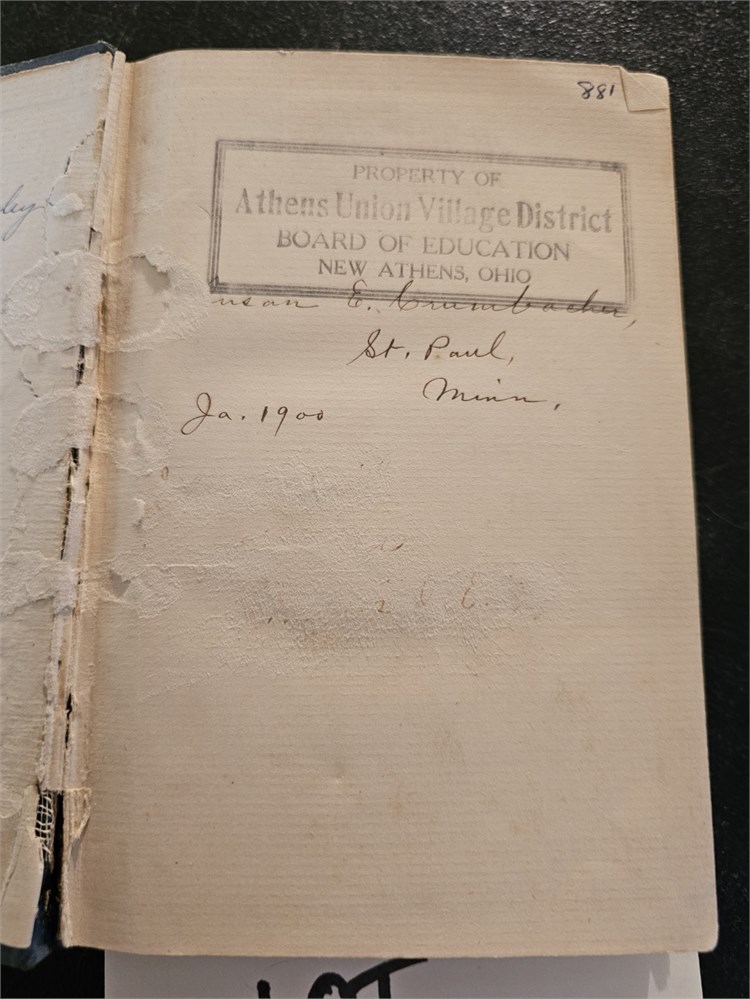 881
PROPERTY OF
Athens Union Village District
BOARD OF EDUCATION
NEW ATHENS, OHIO
E. Crumbacher,
St. Paul,
Minn,
Ja. 1900
LOT